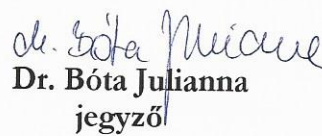 dr. Bóta Julianna
Dr. Bóta Julianna
jegyző